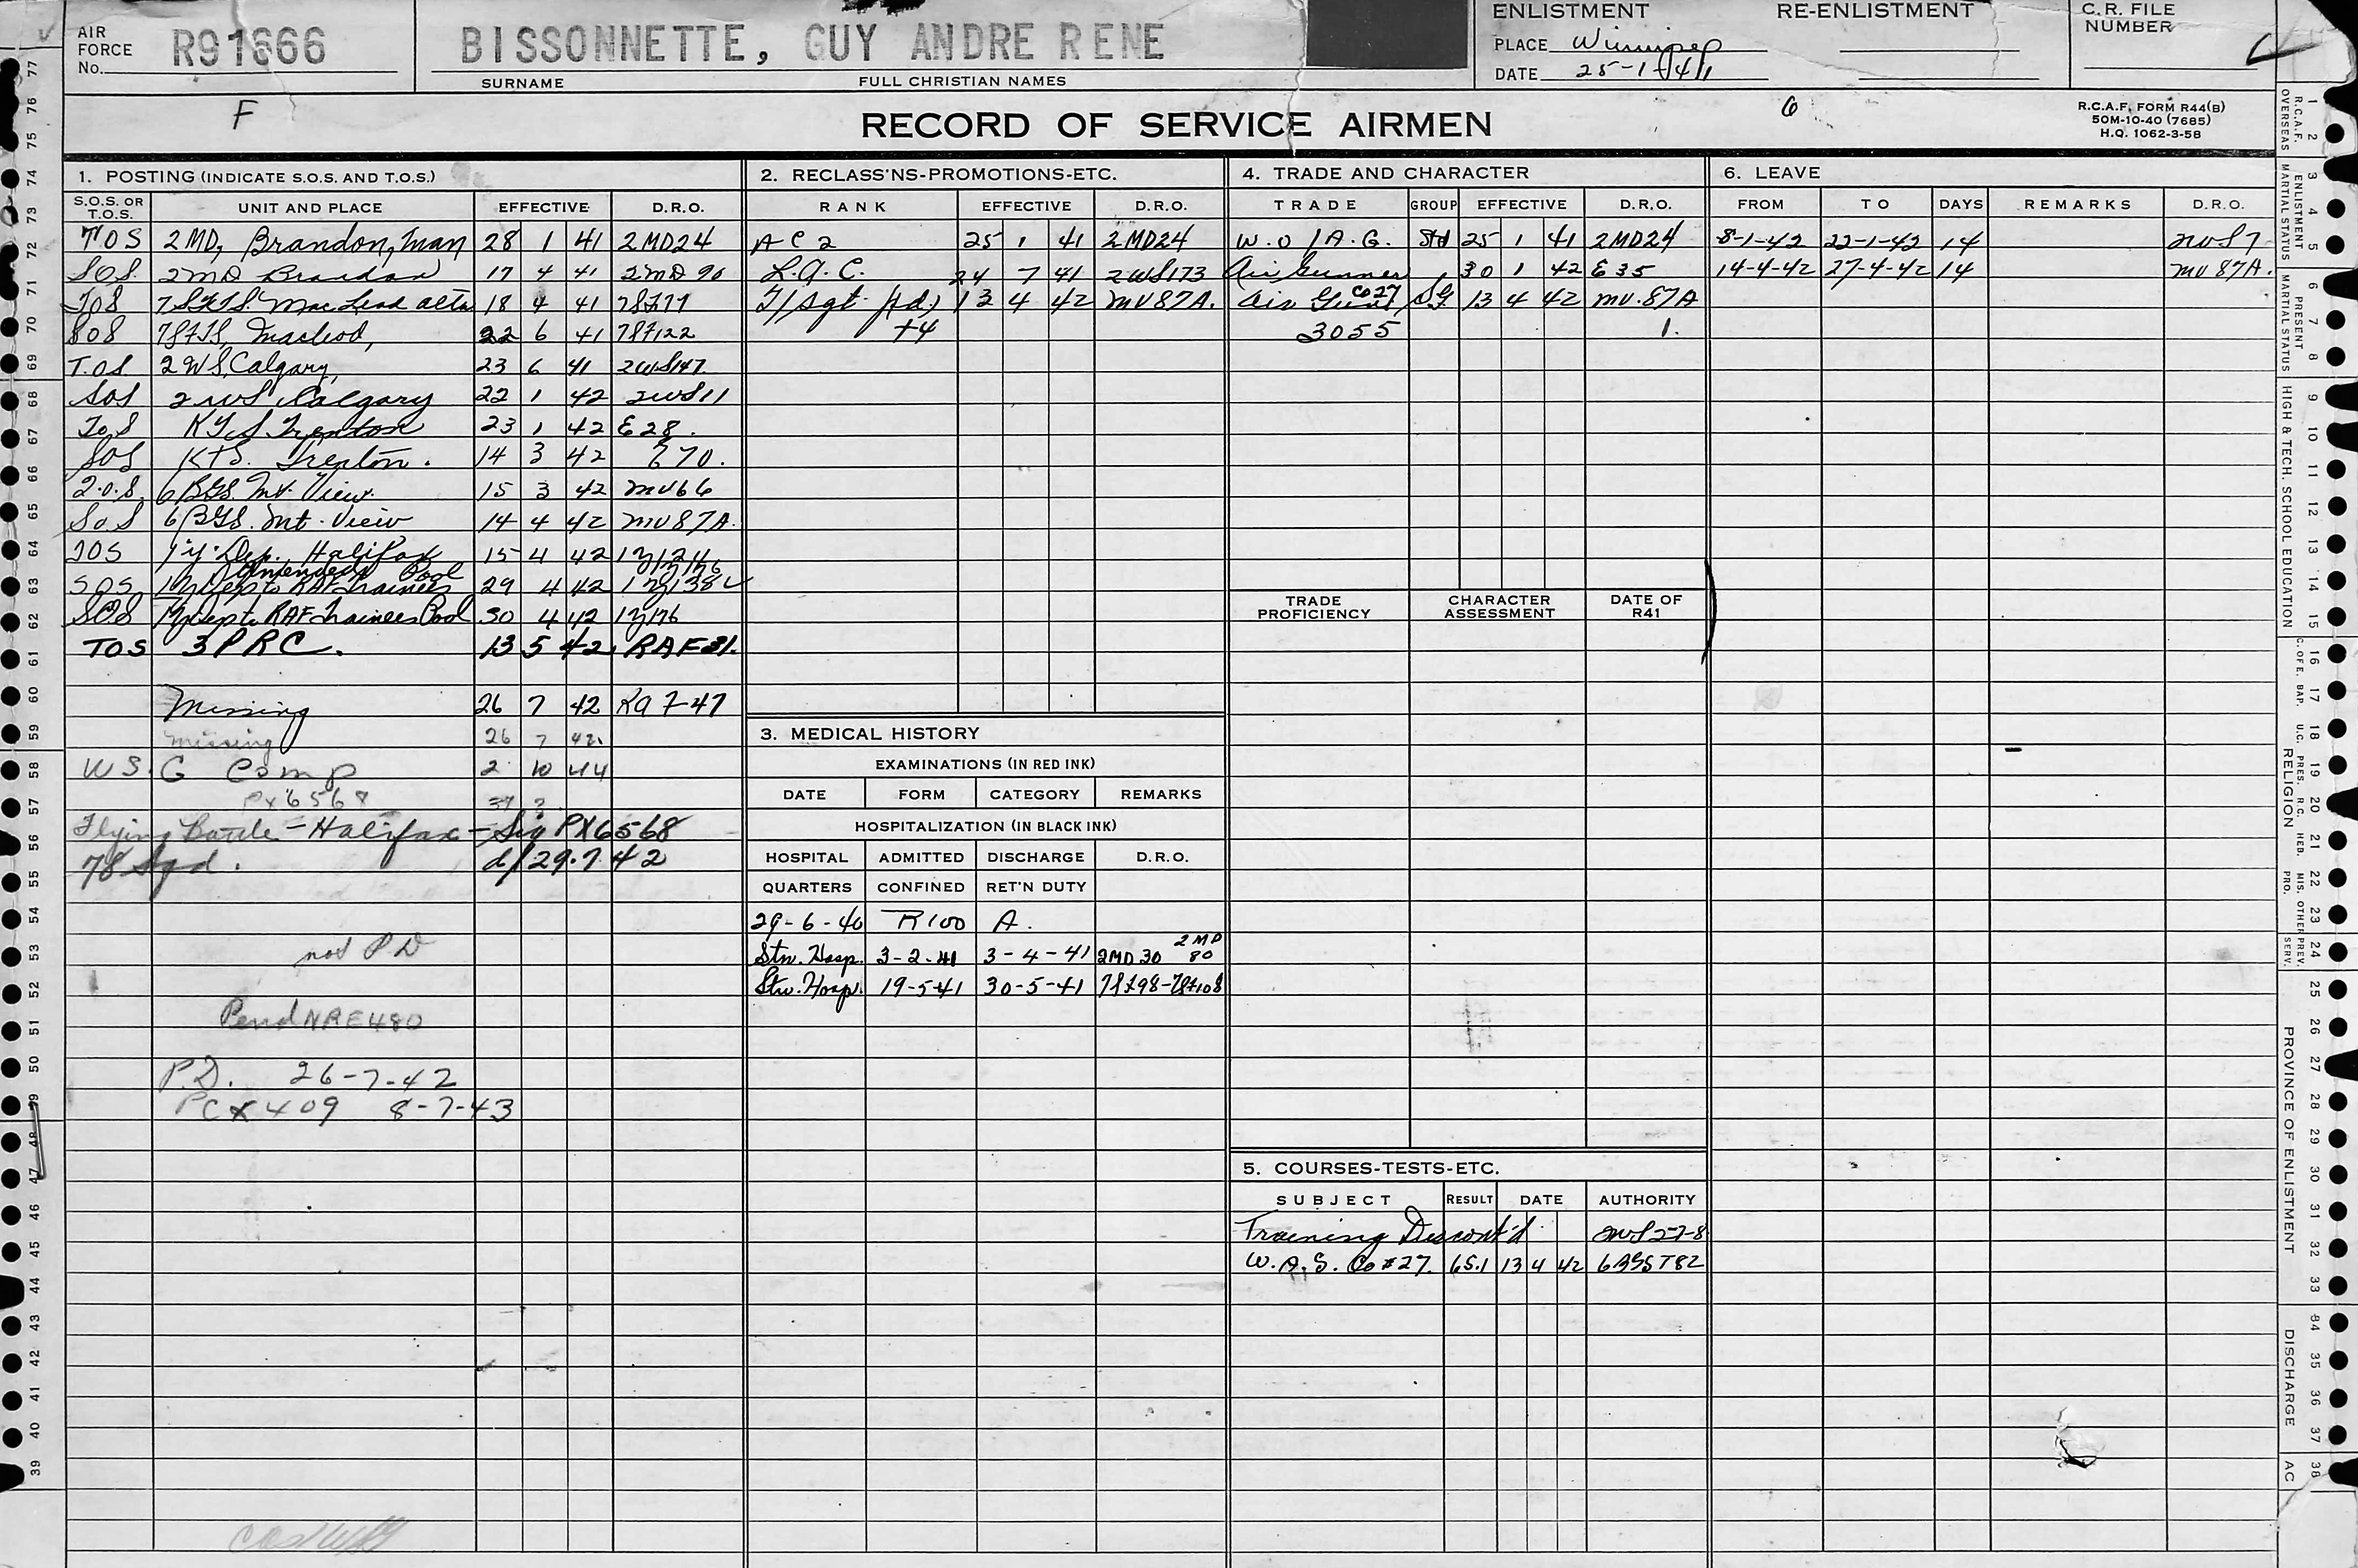 AIR FORCE No. R91666 BISSONNETTE, GUY ANDRE RENE
SURNAME FULL CHRISTIAN NAMES
ENLISTMENT RE-ENLISTMENT
PLACE Winnipeg
DATE 25-1-41
C.R. FILE NUMBER
F
6
RECORD OF SERVICE AIRMEN
R.C.A.F. FORM R44(B)
50M-10-40 (7685)
H.Q. 1062-3-58
1. POSTING (INDICATE S.O.S. AND T.O.S.)
S.O.S. OR T.O.S. UNIT AND PLACE EFFECTIVE D.R.O.
TOS 2 MD, Brandon, Man 28 1 41 2MD24
SOS 2 MD Brandon 17 4 41 2MD 90
TOS 7 SFTS. MacLeod alta 18 4 41 7SF77
SOS 7SFTS, Macleod, 22 6 41 7SF122
T.OS. 2 WS, Calgary, 23 6 41 2WS147
SOS 2 WS Calgary 22 1 42 2WS11
ToS KTS Trenton 23 1 42 E28.
SOS KTS. Trenton. 14 3 42 E70.
T.O.S. 6 BGS. Mt. View. 15 3 42 MV66
SoS 6 BGS. Mt. View 14 4 42 MV87A.
TOS 1 "Y" Dep. Halifax 15 4 42
Amended Pool
SOS 1 Y Dep to RAF Trainees 29 4 42 1Y138
SOS 1 Y Dept. RAF Trainees Pool 30 4 42 1Y176
TOS 3 PRC. 13 5 42 RAF 31.
Missing 26 7 42 RO 7-47
Missing 26 7 42
W S. G Comp 2 10 44
PX6568
Flying Battle - Halifax - Sig PX6568
78 Sqd. d/29.7.42
not P D
Pend NRE480
P.D. 26-7-42
PCX409 8-7-43
2. RECLASS'NS-PROMOTIONS-ETC.
RANK EFFECTIVE D.R.O.
AC2 25 1 41 2MD24
L.A.C. 24 7 41 2WS173
T/Sgt (pd) 13 4 42 MV87A.
+4
3. MEDICAL HISTORY
EXAMINATIONS (IN RED INK)
DATE FORM CATEGORY REMARKS
HOSPITALIZATION (IN BLACK INK)
HOSPITAL ADMITTED DISCHARGE D.R.O.
QUARTERS CONFINED RET'N DUTY
29-6-40 R100 A.
Stn. Hosp. 3-2-41 3-4-41 2MD30 2MD 80
Stn. Hosp. 19-5-41 30-5-41 7SF98-7SF108
4. TRADE AND CHARACTER
TRADE GROUP EFFECTIVE D.R.O.
W.O/A.G. Std 25 1 41 2MD24
Air Gunner 30 1 42 E35
Air Gunner Co27 SG 13 4 42 MV.87A
3055 1.
TRADE PROFICIENCY CHARACTER ASSESSMENT DATE OF R41
5. COURSES-TESTS-ETC.
SUBJECT RESULT DATE AUTHORITY
Training Discont'd 2WS27-8
W.A.G. Co #27. 65.1 13 4 42 6BGST82
6. LEAVE
FROM TO DAYS REMARKS D.R.O.
8-1-42 22-1-42 14 2WS7
14-4-42 27-4-42 14 MV87A.
77
76
75
74
73
72
71
70
69
68
67
66
65
64
63
62
61
60
59
58
57
56
55
54
53
52
51
50
49
48
47
46
45
44
43
42
41
40
39
R.C.A.F. OVERSEAS
ENLISTMENT MARTIAL STATUS
PRESENT MARTIAL STATUS
HIGH & TECH. SCHOOL EDUCATION
C. OF E. BAP. U.C. PRES. R.C. HEB. MIS. PRO. OTHER
RELIGION
PREV. SERV.
PROVINCE OF ENLISTMENT
DISCHARGE
AC
1
2
3
4
5
6
7
8
9
10
11
12
13
14
15
16
17
18
19
20
21
22
23
24
25
26
27
28
29
30
31
32
33
34
35
36
37
38